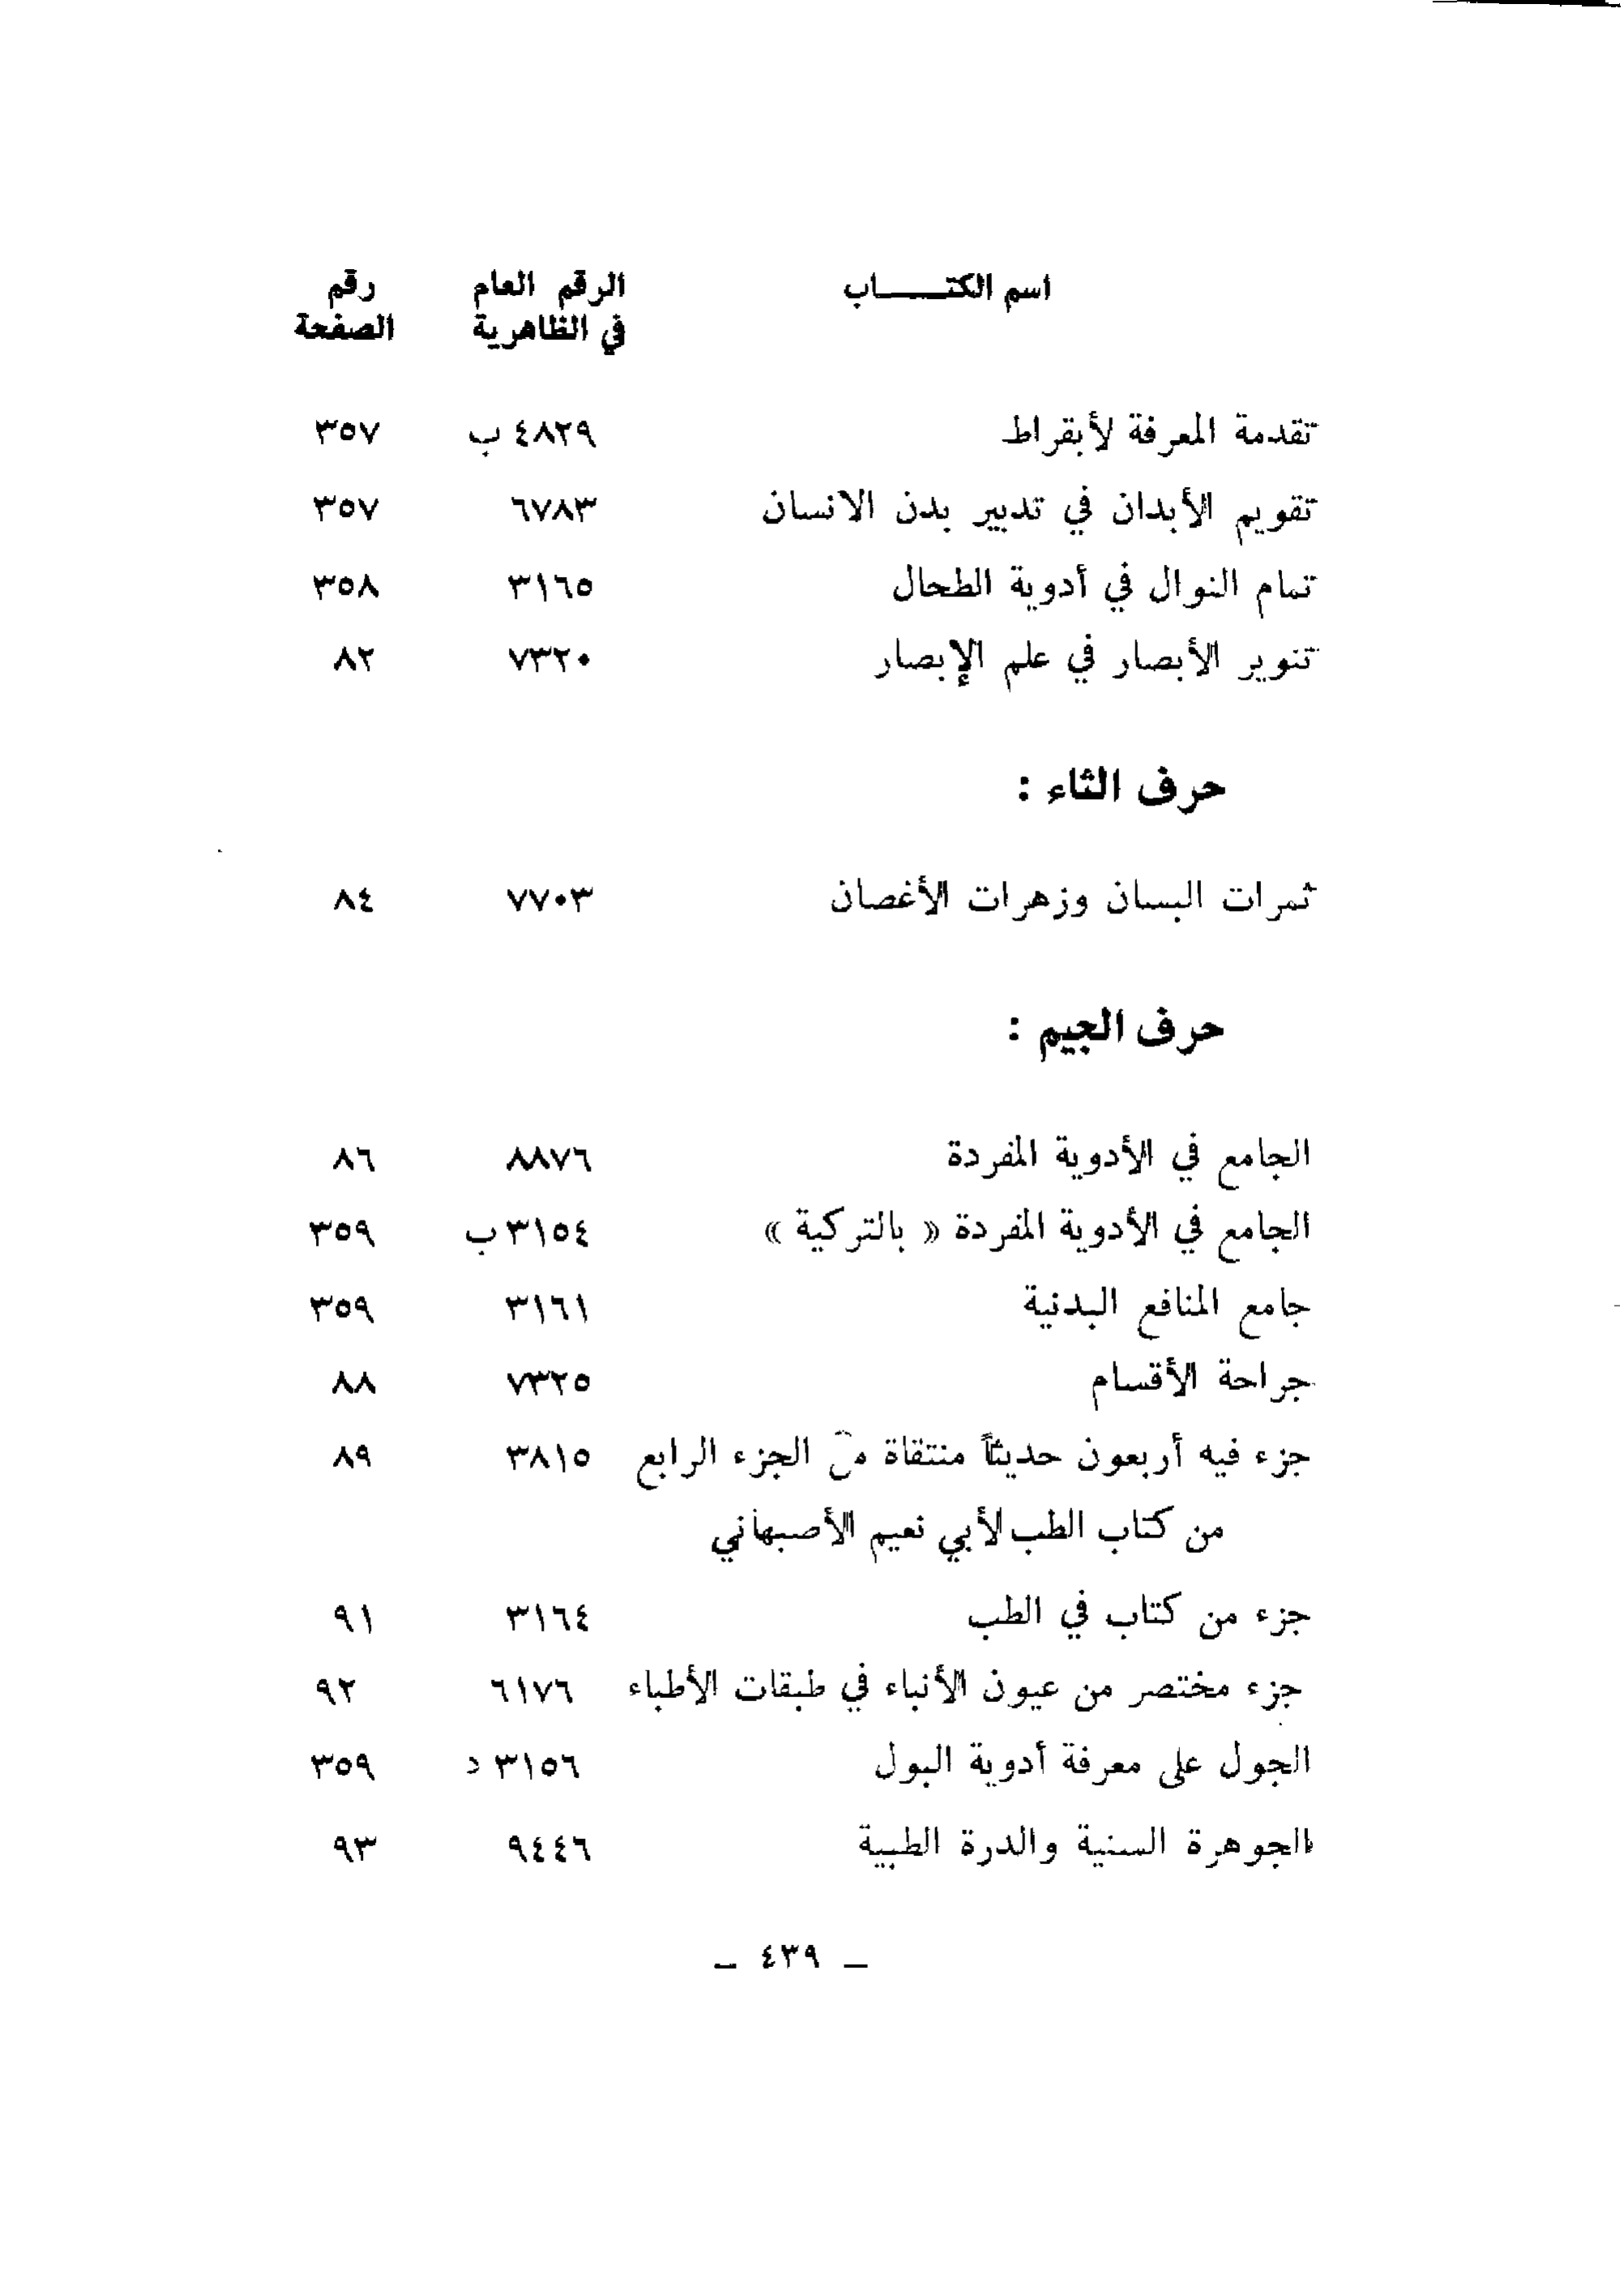 اسم الكتـــاب الرقم العام رقم
في الظاهرية الصفحة
تقدمة المعرفة لأبقراط ٤٨٢٩ ب ٣٥٧
تقويم الأبدان في تدبير بدن الانسان ٦٧٨٣ ٣٥٧
تمام النوال في أدوية الطحال ٣١٦٥ ٣٥٨
تنوير الأبصار في علم الإبصار ٧٣٢٠ ٨٢
حرف الثاء :
ثمرات البستان وزهرات الأغصان ٧٧٠٣ ٨٤
حرف الجيم :
الجامع في الأدوية المفردة ٨٨٧٦ ٨٦
الجامع في الأدوية المفردة « بالتركية » ٣١٥٤ ب ٣٥٩
جامع المنافع البدنية ٣١٦١ ٣٥٩
جراحة الأقسام ٧٣٢٥ ٨٨
جزء فيه أربعون حديثاً منتقاة من الجزء الرابع ٣٨١٥ ٨٩
من كتاب الطب لأبي نعيم الأصبهاني
جزء من كتاب في الطب ٣١٦٤ ٩١
جزء مختصر من عيون الأنباء في طبقات الأطباء ٦١٧٦ ٩٢
الجول على معرفة أدوية البول ٣١٥٦ د ٣٥٩
الجوهرة السنية والدرة الطبية ٩٤٤٦ ٩٣
ـ ٤٣٩ ـ